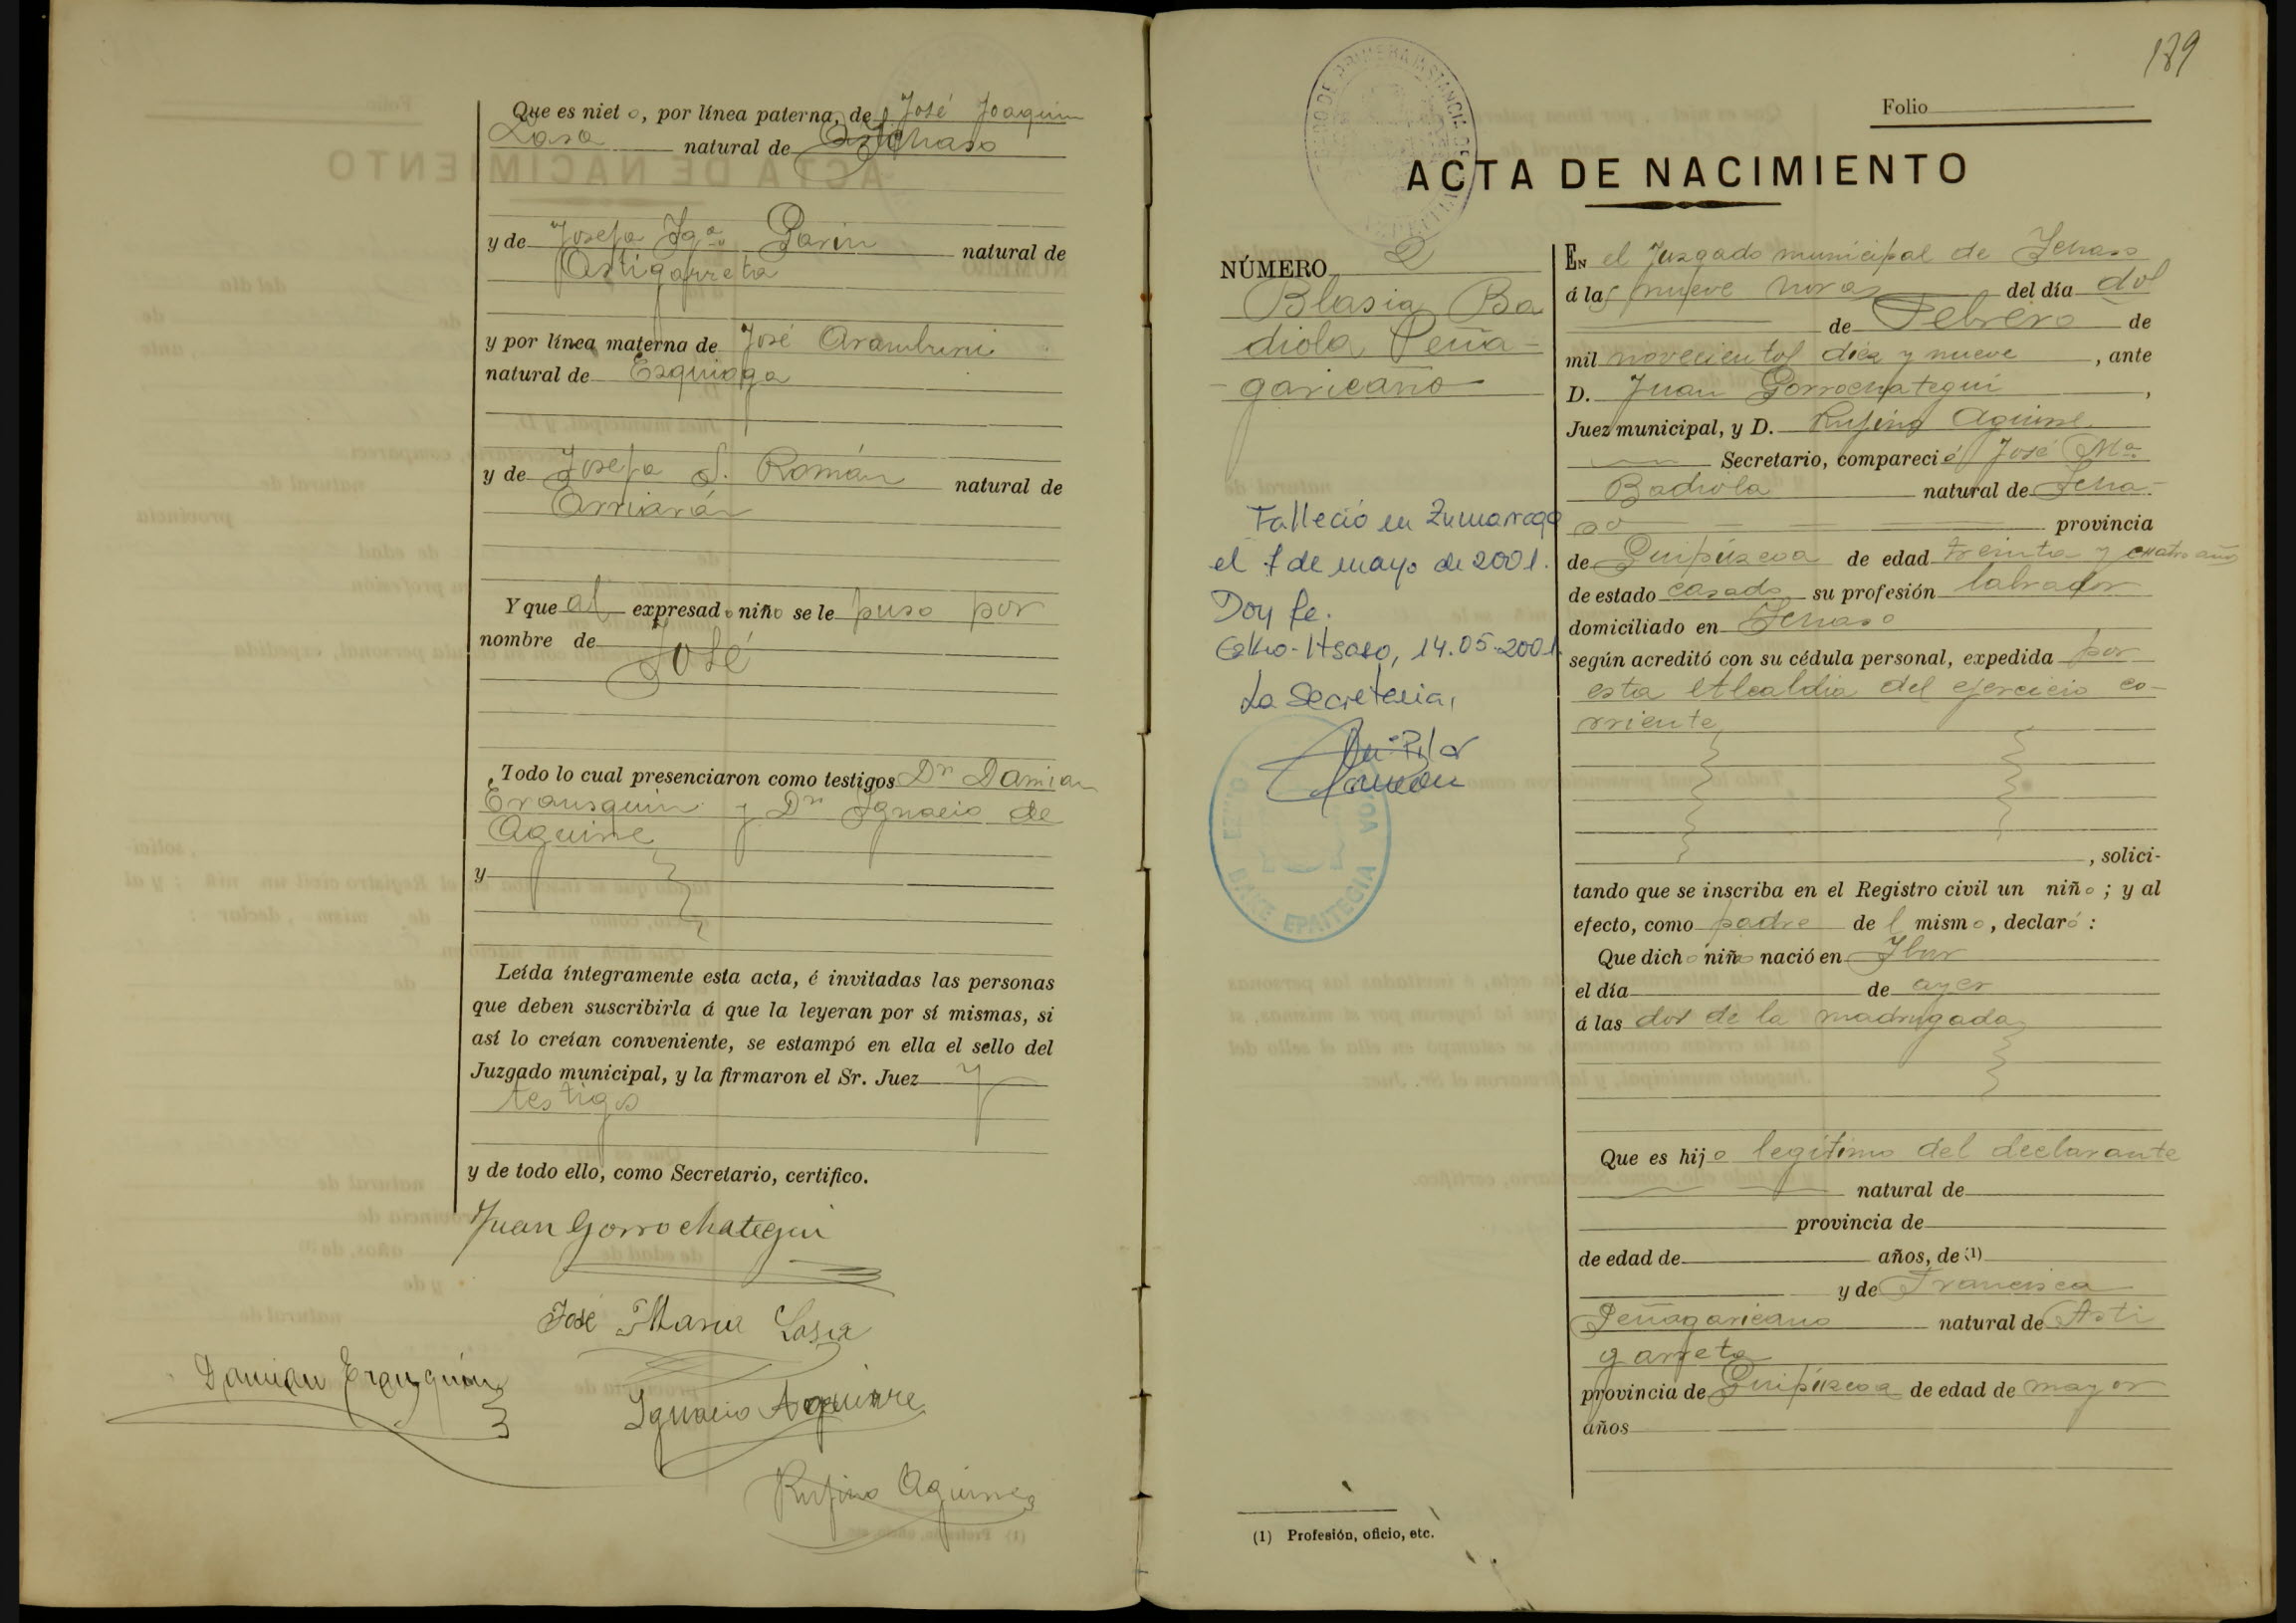 Que es nieto, por línea paterna, de José Joaquin
Lasa natural de Ichaso
y de Josefa Igª Garin natural de
Astigarreta
y por línea materna de José Aramburu
natural de Ezquioga
y de Josefa S. Román natural de
Arriarán
Y que al expresado niño se le puso por
nombre de José
Todo lo cual presenciaron como testigos Dn Damian
Erausquin y Dn Ignacio de
Aguirre
y
Leída íntegramente esta acta, é invitadas las personas
que deben suscribirla á que la leyeran por sí mismas, si
así lo creían conveniente, se estampó en ella el sello del
Juzgado municipal, y la firmaron el Sr. Juez y
testigos
y de todo ello, como Secretario, certifico.
Juan Gorrochategui
José Maria Lasa
Damian Erausquin
Ignacio Aguirre
Rufino Aguirre
189
Folio
ACTA DE NACIMIENTO
NÚMERO 2
Blasia Ba
diola Peña-
garicano
Falleció en Zumarraga
el 7 de mayo de 2001.
Doy fe.
Ezkio-Itsaso, 14.05.2001
La Secretaria,
Mª Pilar
BAKE EPAITEGIA
EN el Juzgado municipal de Ichaso
á las nueve horas del día dos
de Febrero de
mil novecientos diez y nueve, ante
D. Juan Gorrochategui,
Juez municipal, y D. Rufino Aguirre
Secretario, compareció José Mª
Badiola natural de Icha-
so provincia
de Guipúzcoa de edad treinta y cuatro años
de estado casado su profesión labrador
domiciliado en Ichaso
según acreditó con su cédula personal, expedida por
esta Alcaldia del ejercicio co-
rriente
, solici-
tando que se inscriba en el Registro civil un niño; y al
efecto, como padre del mismo, declaró:
Que dicho niño nació en
el día de ayer
á las dos de la madrugada
Que es hijo legítimo del declarante
natural de
provincia de
de edad de años, de (1)
y de Francisca
Peñagaricano natural de Asti
garreta
provincia de Guipúzcoa de edad de mayor
años
(1) Profesión, oficio, etc.